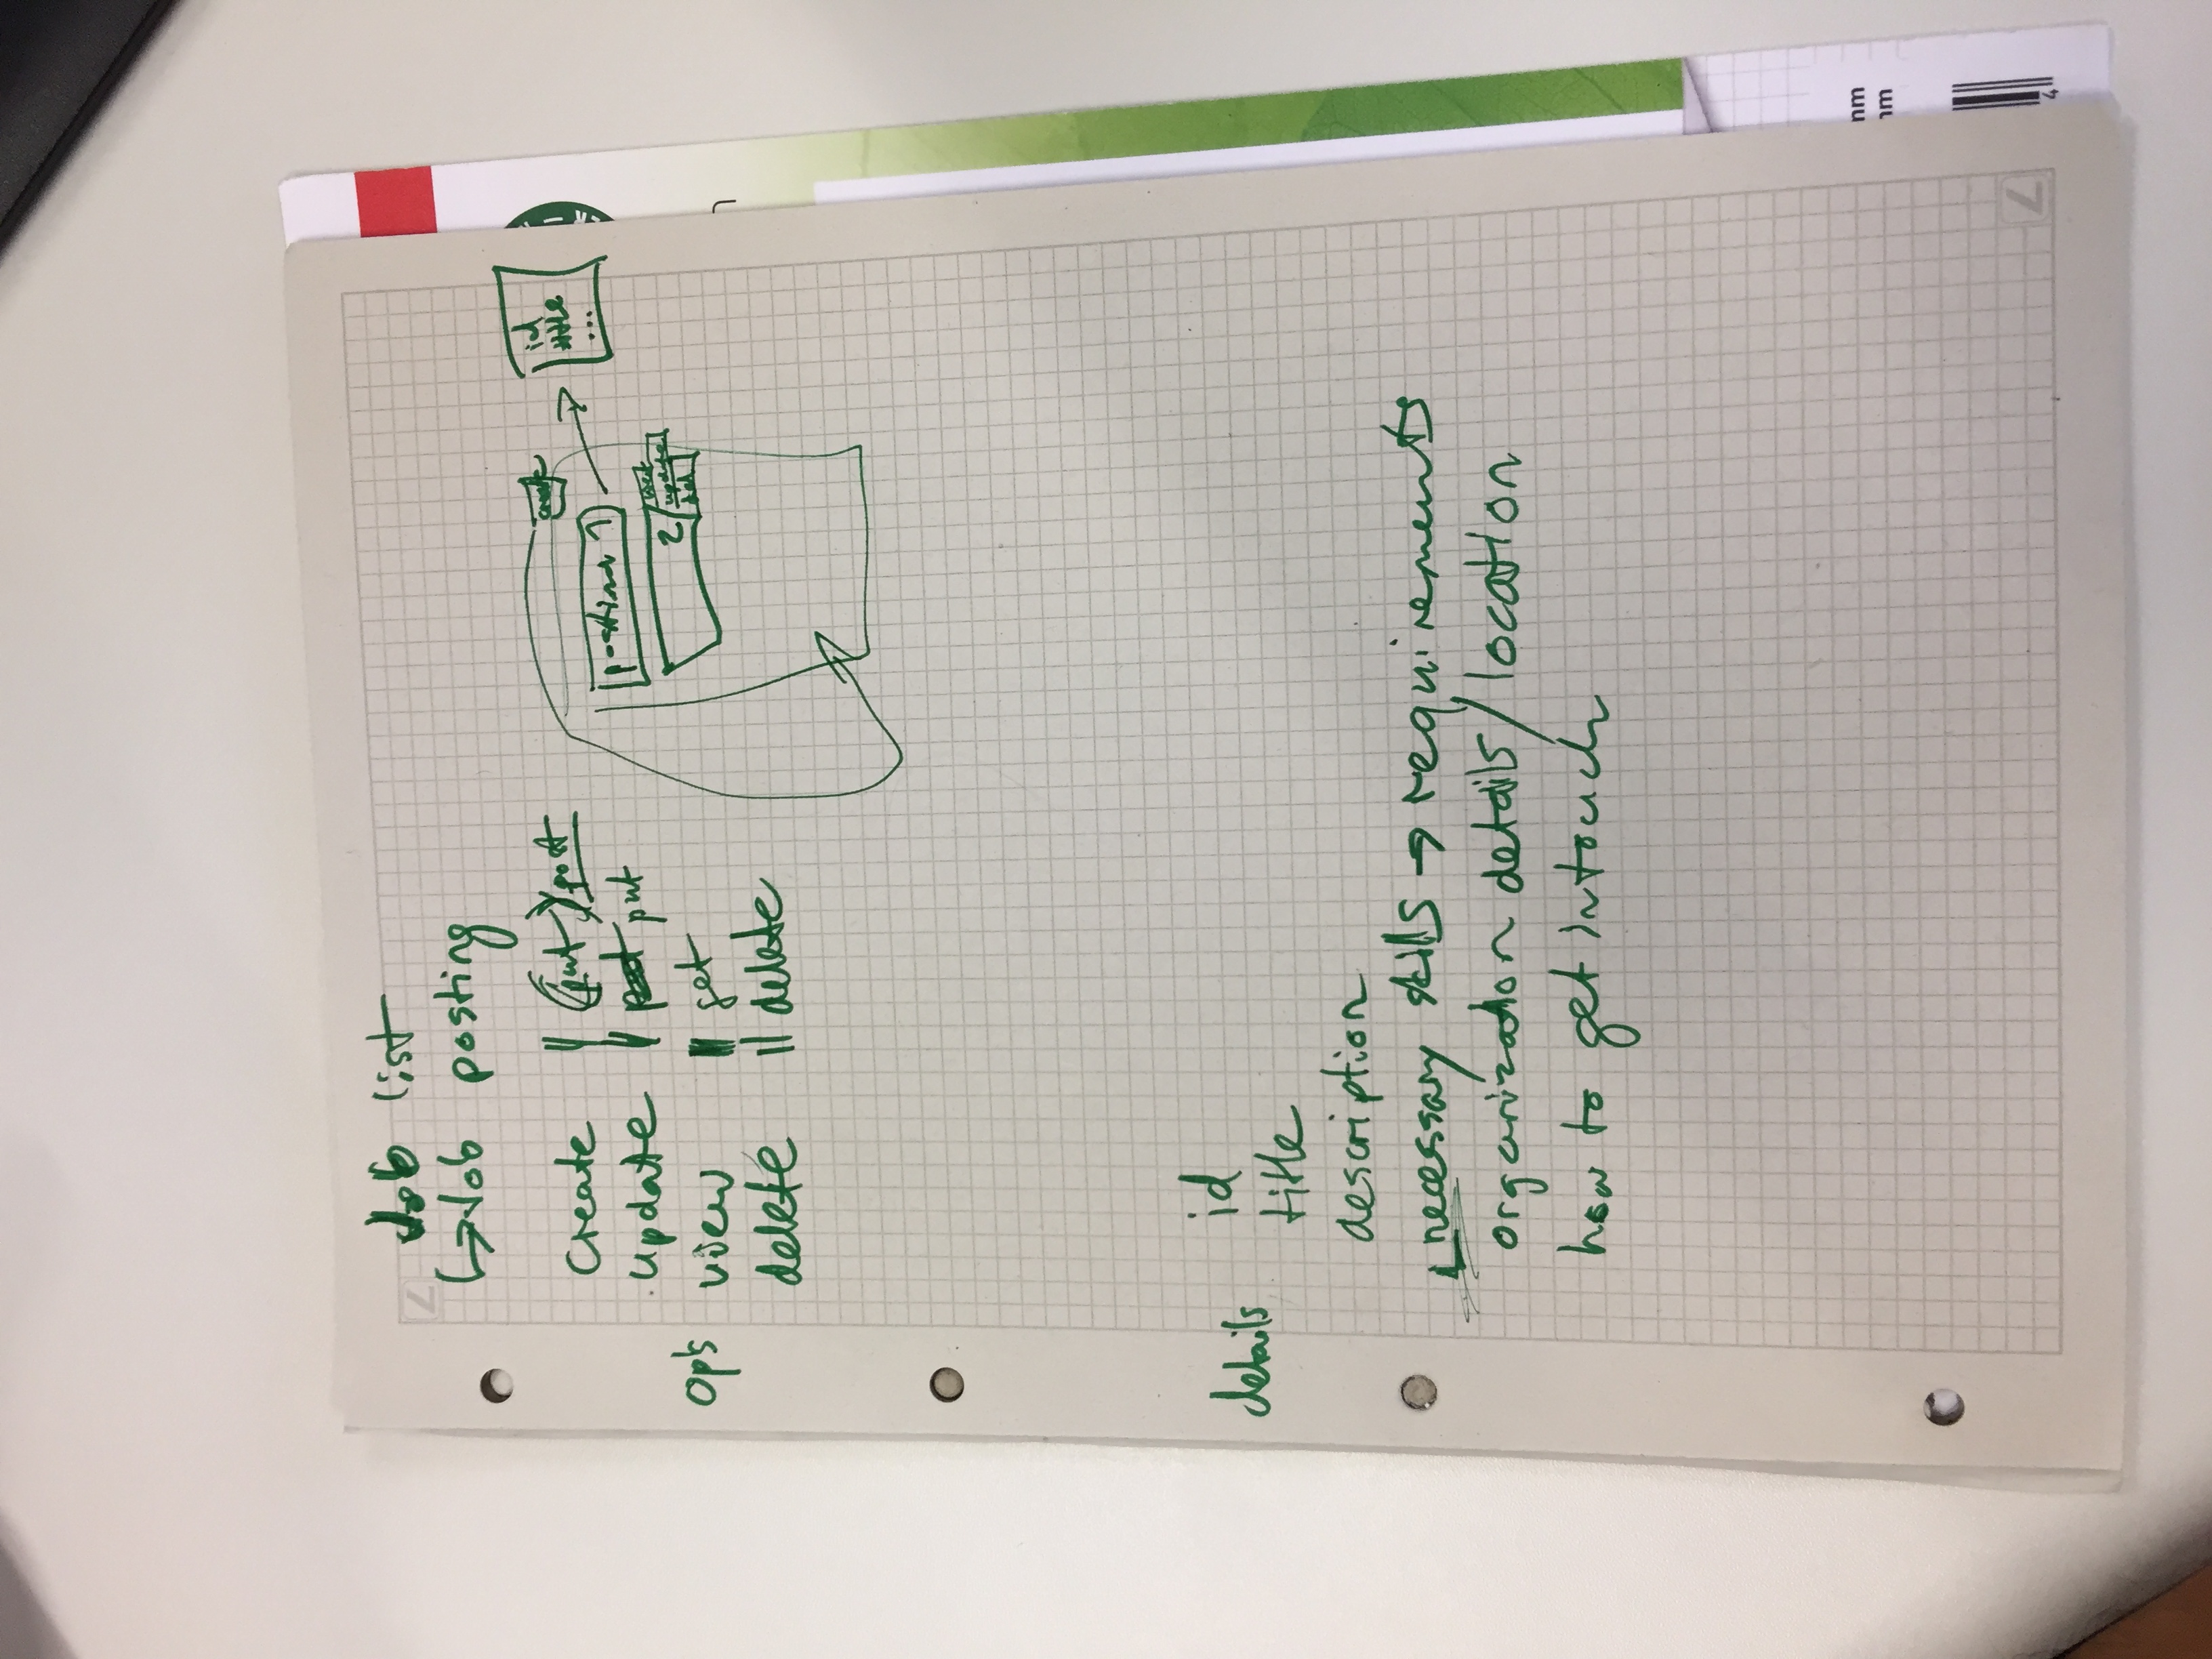 Job list
↳ Job posting
ops
create || (put) post
update || put
view || get
delete || delete
create
posting 1
2
update
del
id
title
...
details
id
title
description
necessary skills → requirements
organization details / location
how to get in touch
mm
mm
4